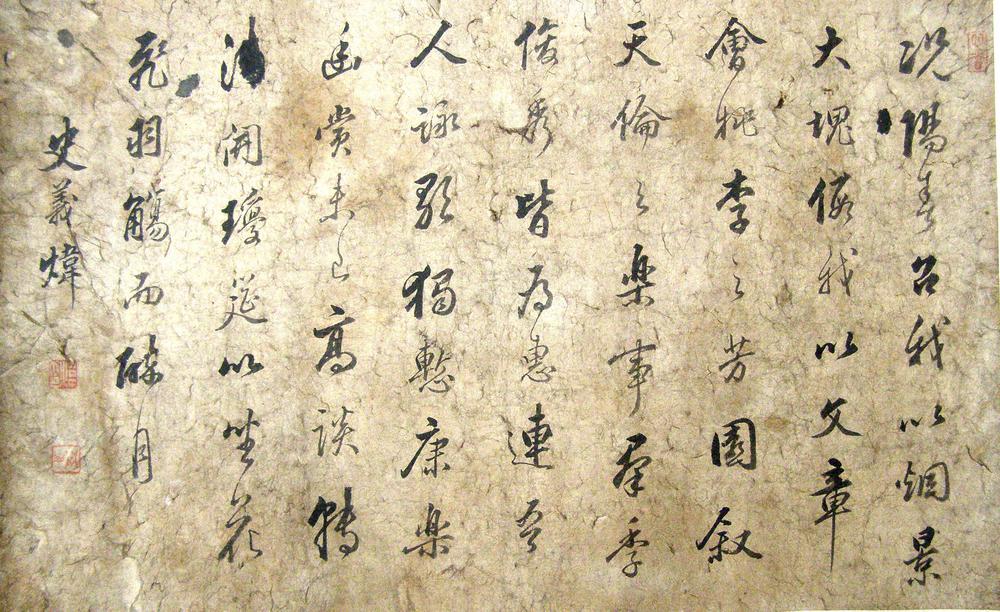 况陽春召我以烟景
大塊假我以文章
會桃李之芳園叙
天倫之樂事羣季
俊秀皆為惠連吾
人詠歌獨慙康樂
幽賞未已高談轉
清開瓊筵以坐花
飛羽觴而醉月
史義煒